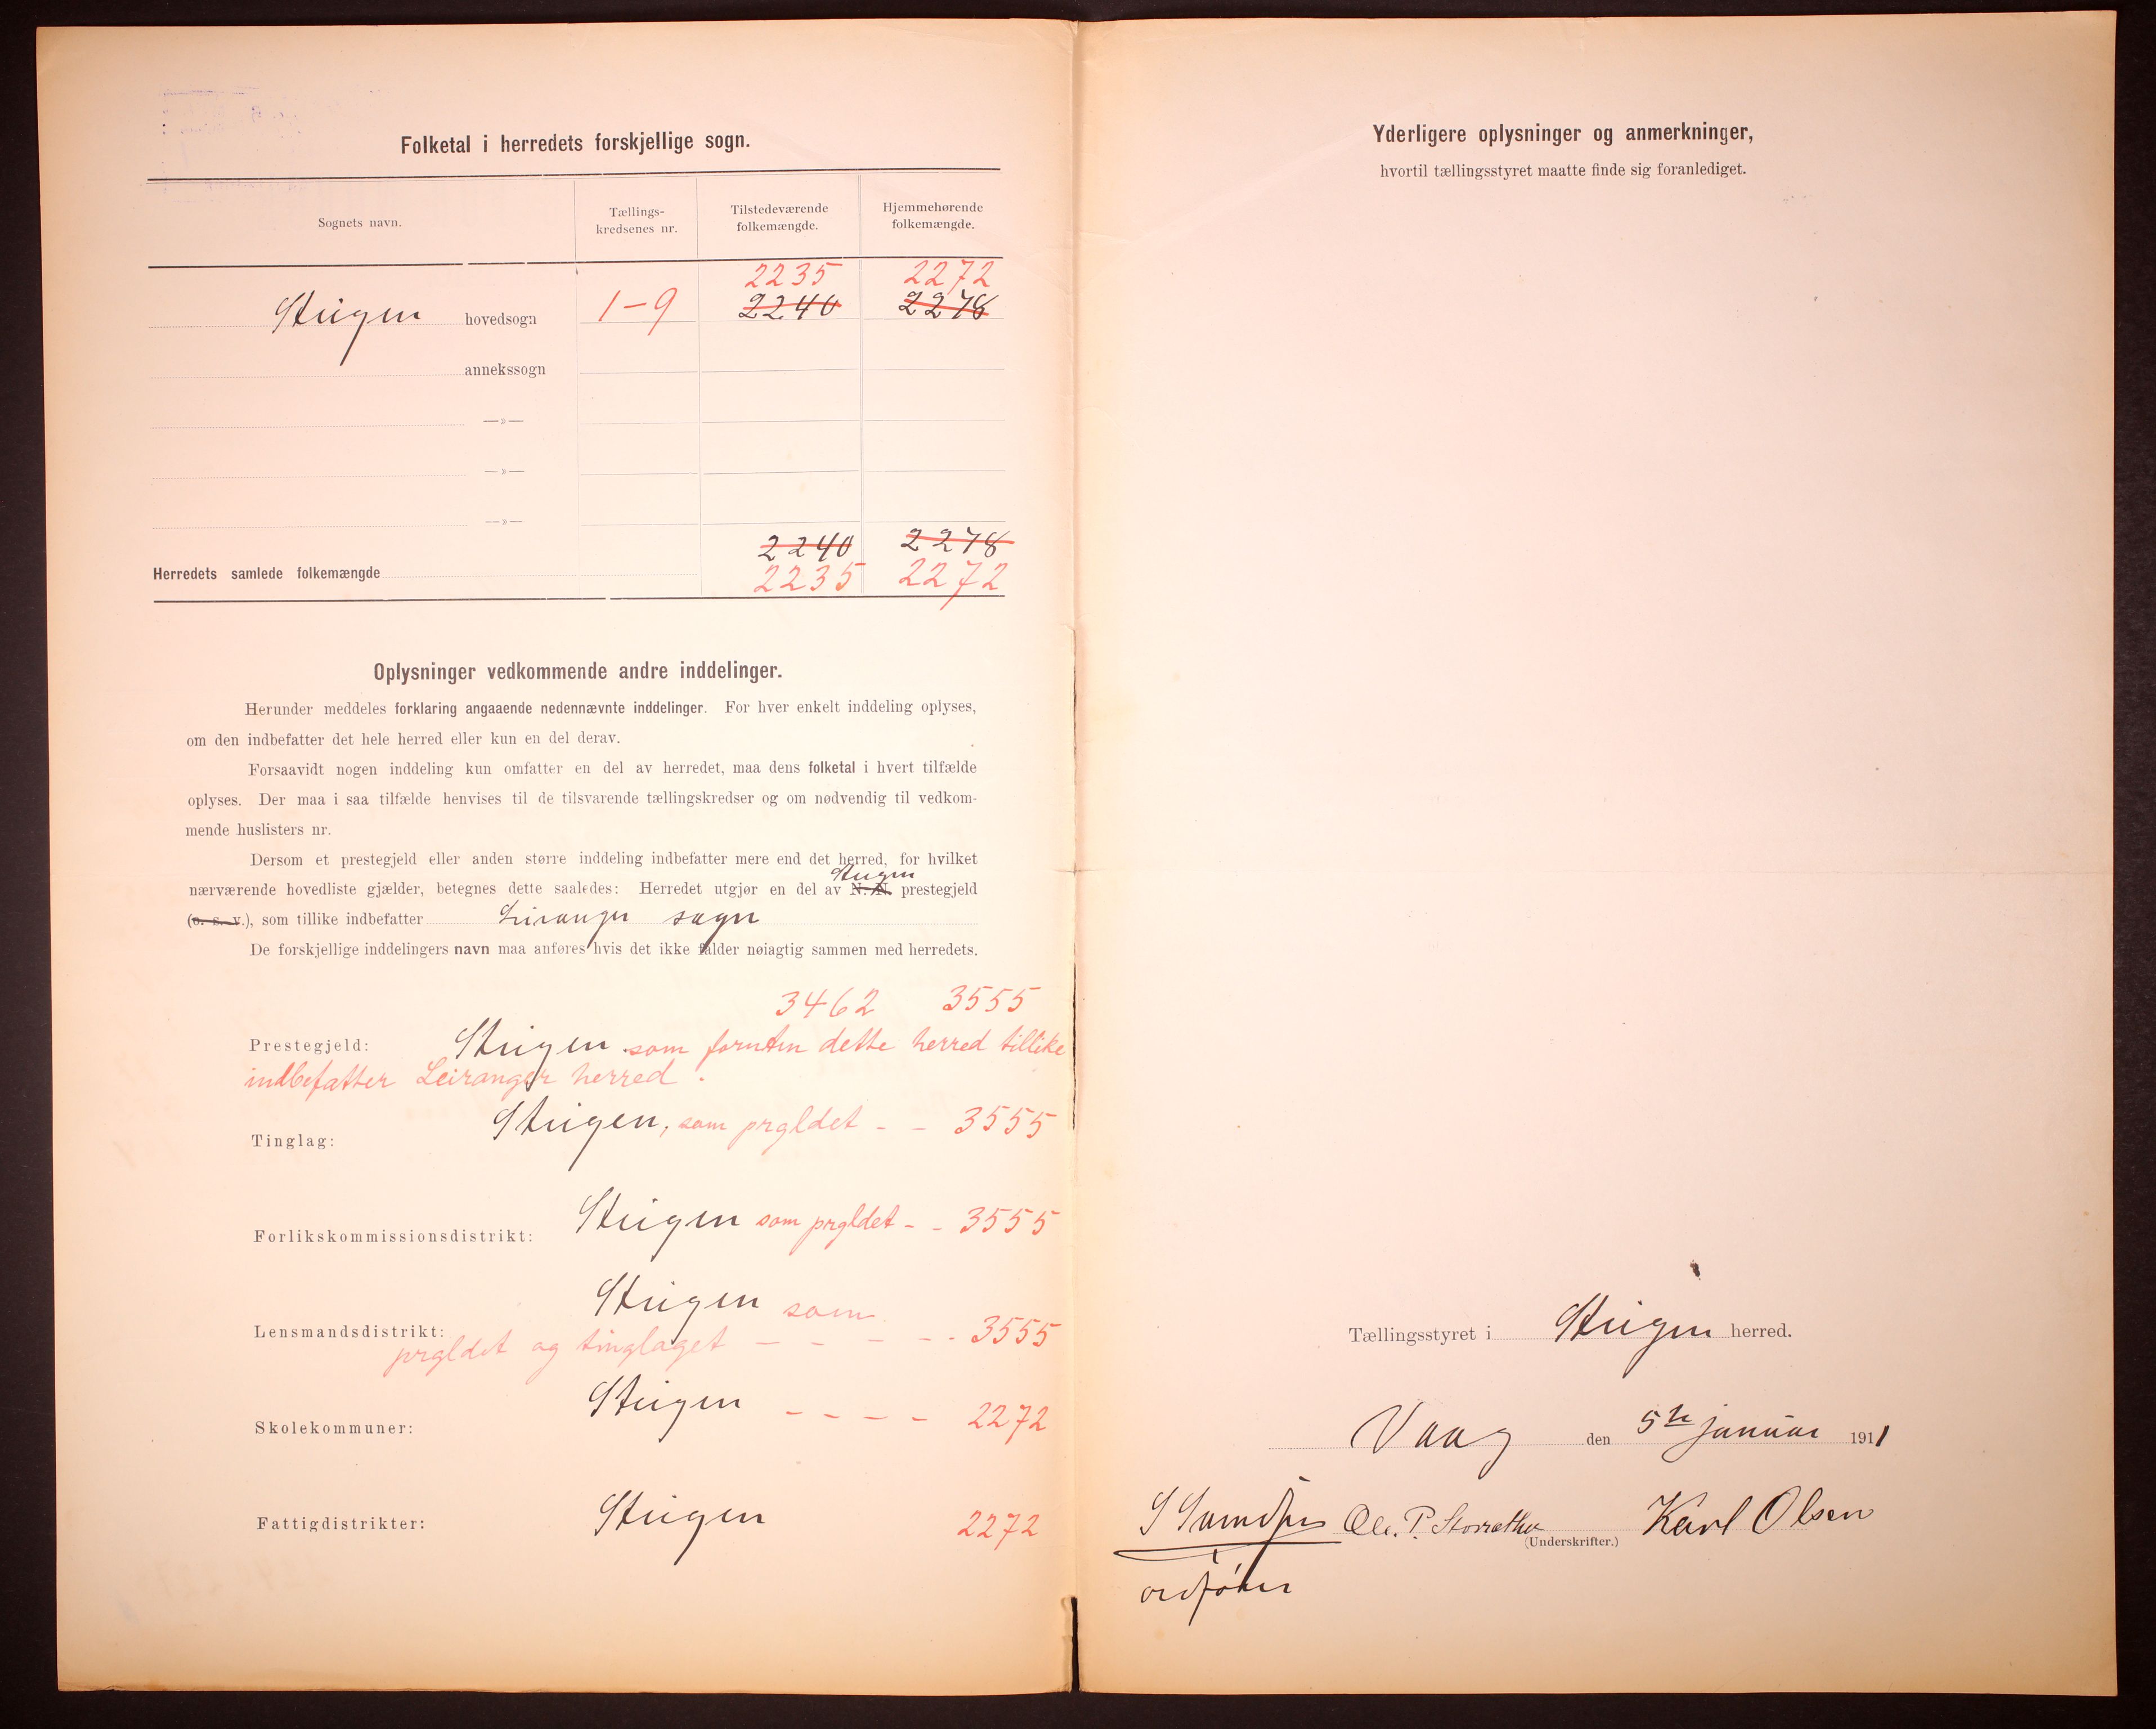 Folketal i herredets forskjellige sogn.
Sognets navn.
Tællings-
kredsenes nr.
Tilstedeværende
folkemængde.
Hjemmehørende
folkemængde.
2235 2272
Steigen hovedsogn 1-9 2240 2278
annekssogn
—»—
—»—
—»—
2240 2278
Herredets samlede folkemængde 2235 2272
Oplysninger vedkommende andre inddelinger.
Herunder meddeles forklaring angaaende nedennævnte inddelinger. For hver enkelt inddeling oplyses,
om den indbefatter det hele herred eller kun en del derav.
Forsaavidt nogen inddeling kun omfatter en del av herredet, maa dens folketal i hvert tilfælde
oplyses. Der maa i saa tilfælde henvises til de tilsvarende tællingskredser og om nødvendig til vedkom-
mende huslisters nr.
Dersom et prestegjeld eller anden større inddeling indbefatter mere end det herred, for hvilket
Steigen
nærværende hovedliste gjælder, betegnes dette saaledes: Herredet utgjør en del av N. N. prestegjeld
(o. s. v.), som tillike indbefatter Leiranger sogn
De forskjellige inddelingers navn maa anføres hvis det ikke falder nøiagtig sammen med herredets.
3462 3555
Prestegjeld: Steigen som foruten dette herred tillike
indbefatter Leiranger herred.
Tinglag: Steigen, som prgldet - - 3555
Forlikskommissionsdistrikt: Steigen som prgldet - - 3555
Lensmandsdistrikt: Steigen som
prgldet og tinglaget - - - - - 3555
Skolekommuner: Steigen - - - - 2272
Fattigdistrikter: Steigen 2272
Yderligere oplysninger og anmerkninger,
hvortil tællingsstyret maatte finde sig foranlediget.
Tællingsstyret i Steigen herred.
Vaag den 5te januar 1911
S Ole. P. Karl Olsen
(Underskrifter.)
ordfører